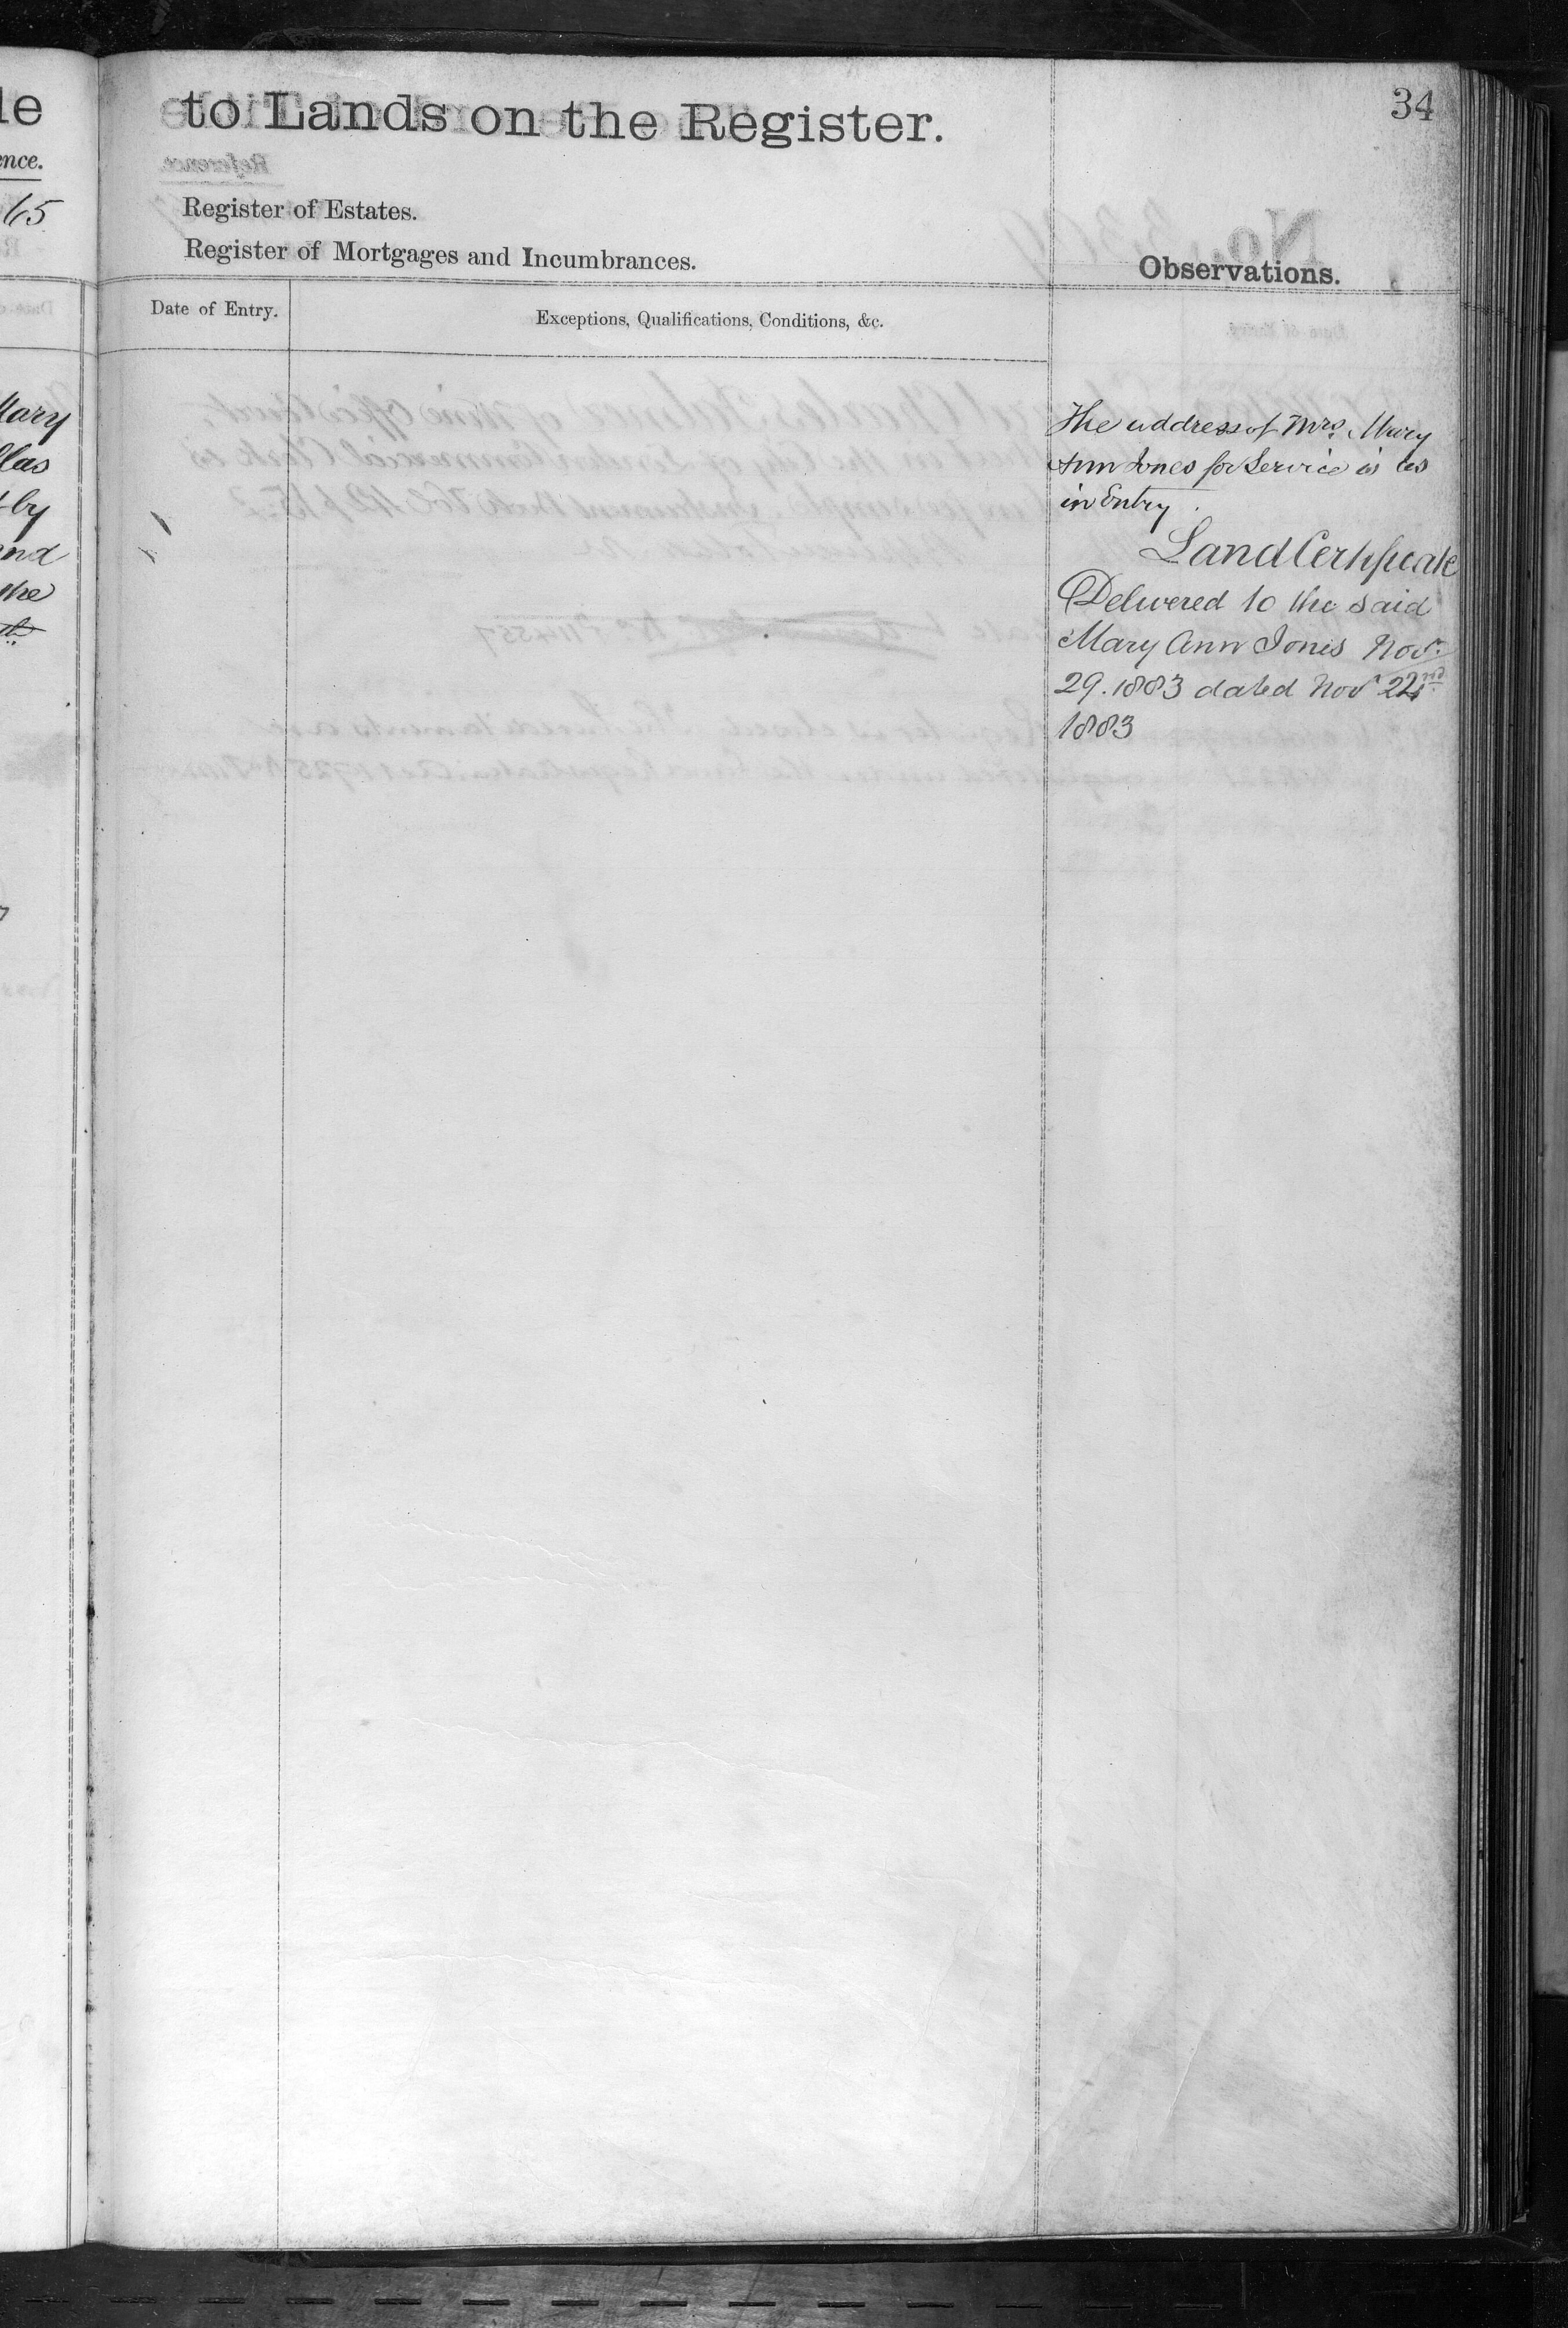 le
ence.
65
Mary
llas
by
and
the
34
to Lands on the Register.
Register of Estates.
Register of Mortgages and Incumbrances.
Observations.
Date of Entry.
Exceptions, Qualifications, Conditions, &c.
The address of Mrs. Mary
Ann Jones for Service is as
in Entry.
Land Certificate
Delivered to the said
Mary Ann Jones Novr.
29. 1883 dated Novr 22nd
1883